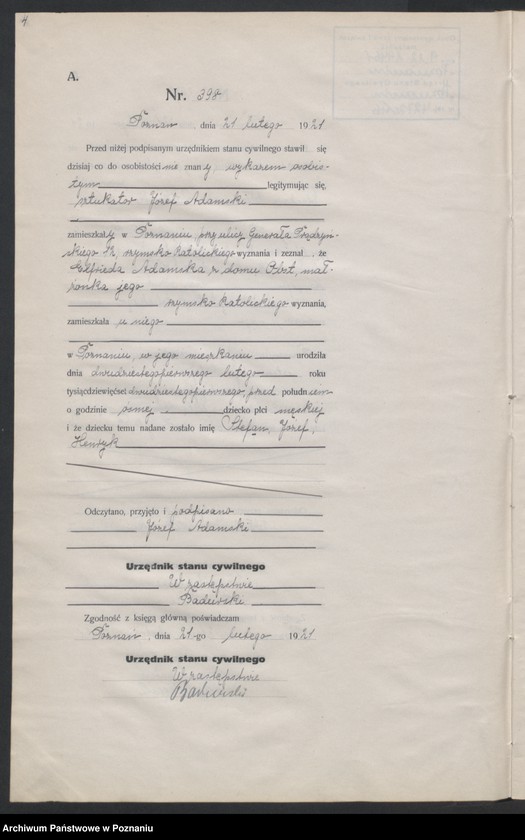 4.
A.
Nr. 398
Poznań dnia 21 lutego 1921
Przed niżej podpisanym urzędnikiem stanu cywilnego stawił się
dzisiaj co do osobistości nie znany, wykazem osobis-
tym legitymując się,
sztukator Józef Adamski
zamieszkały w Poznaniu, przy ulicy Generała Prądzyń-
skiego, rzymsko katolickiego wyznania i zeznał, że
Elfrieda Adamska z domu Obst, mał-
żonka jego
rzymsko katolickiego wyznania,
zamieszkała u niego
w Poznaniu, w jego mieszkaniu urodziła
dnia dwudziestegopierwszego lutego roku
tysiącdziewięćset dwudziestegopierwszego, przed południem
o godzinie ósmej dziecko płci męskiej
i że dziecku temu nadane zostało imię Stefan, Józef,
Henryk
Odczytano, przyjęto i podpisano
Józef Adamski
Urzędnik stanu cywilnego
W zastępstwie
Zgodność z księgą główną poświadczam
Poznań, dnia 21-go lutego 1921
Urzędnik stanu cywilnego
W zastępstwie
Archiwum Państwowe w Poznaniu